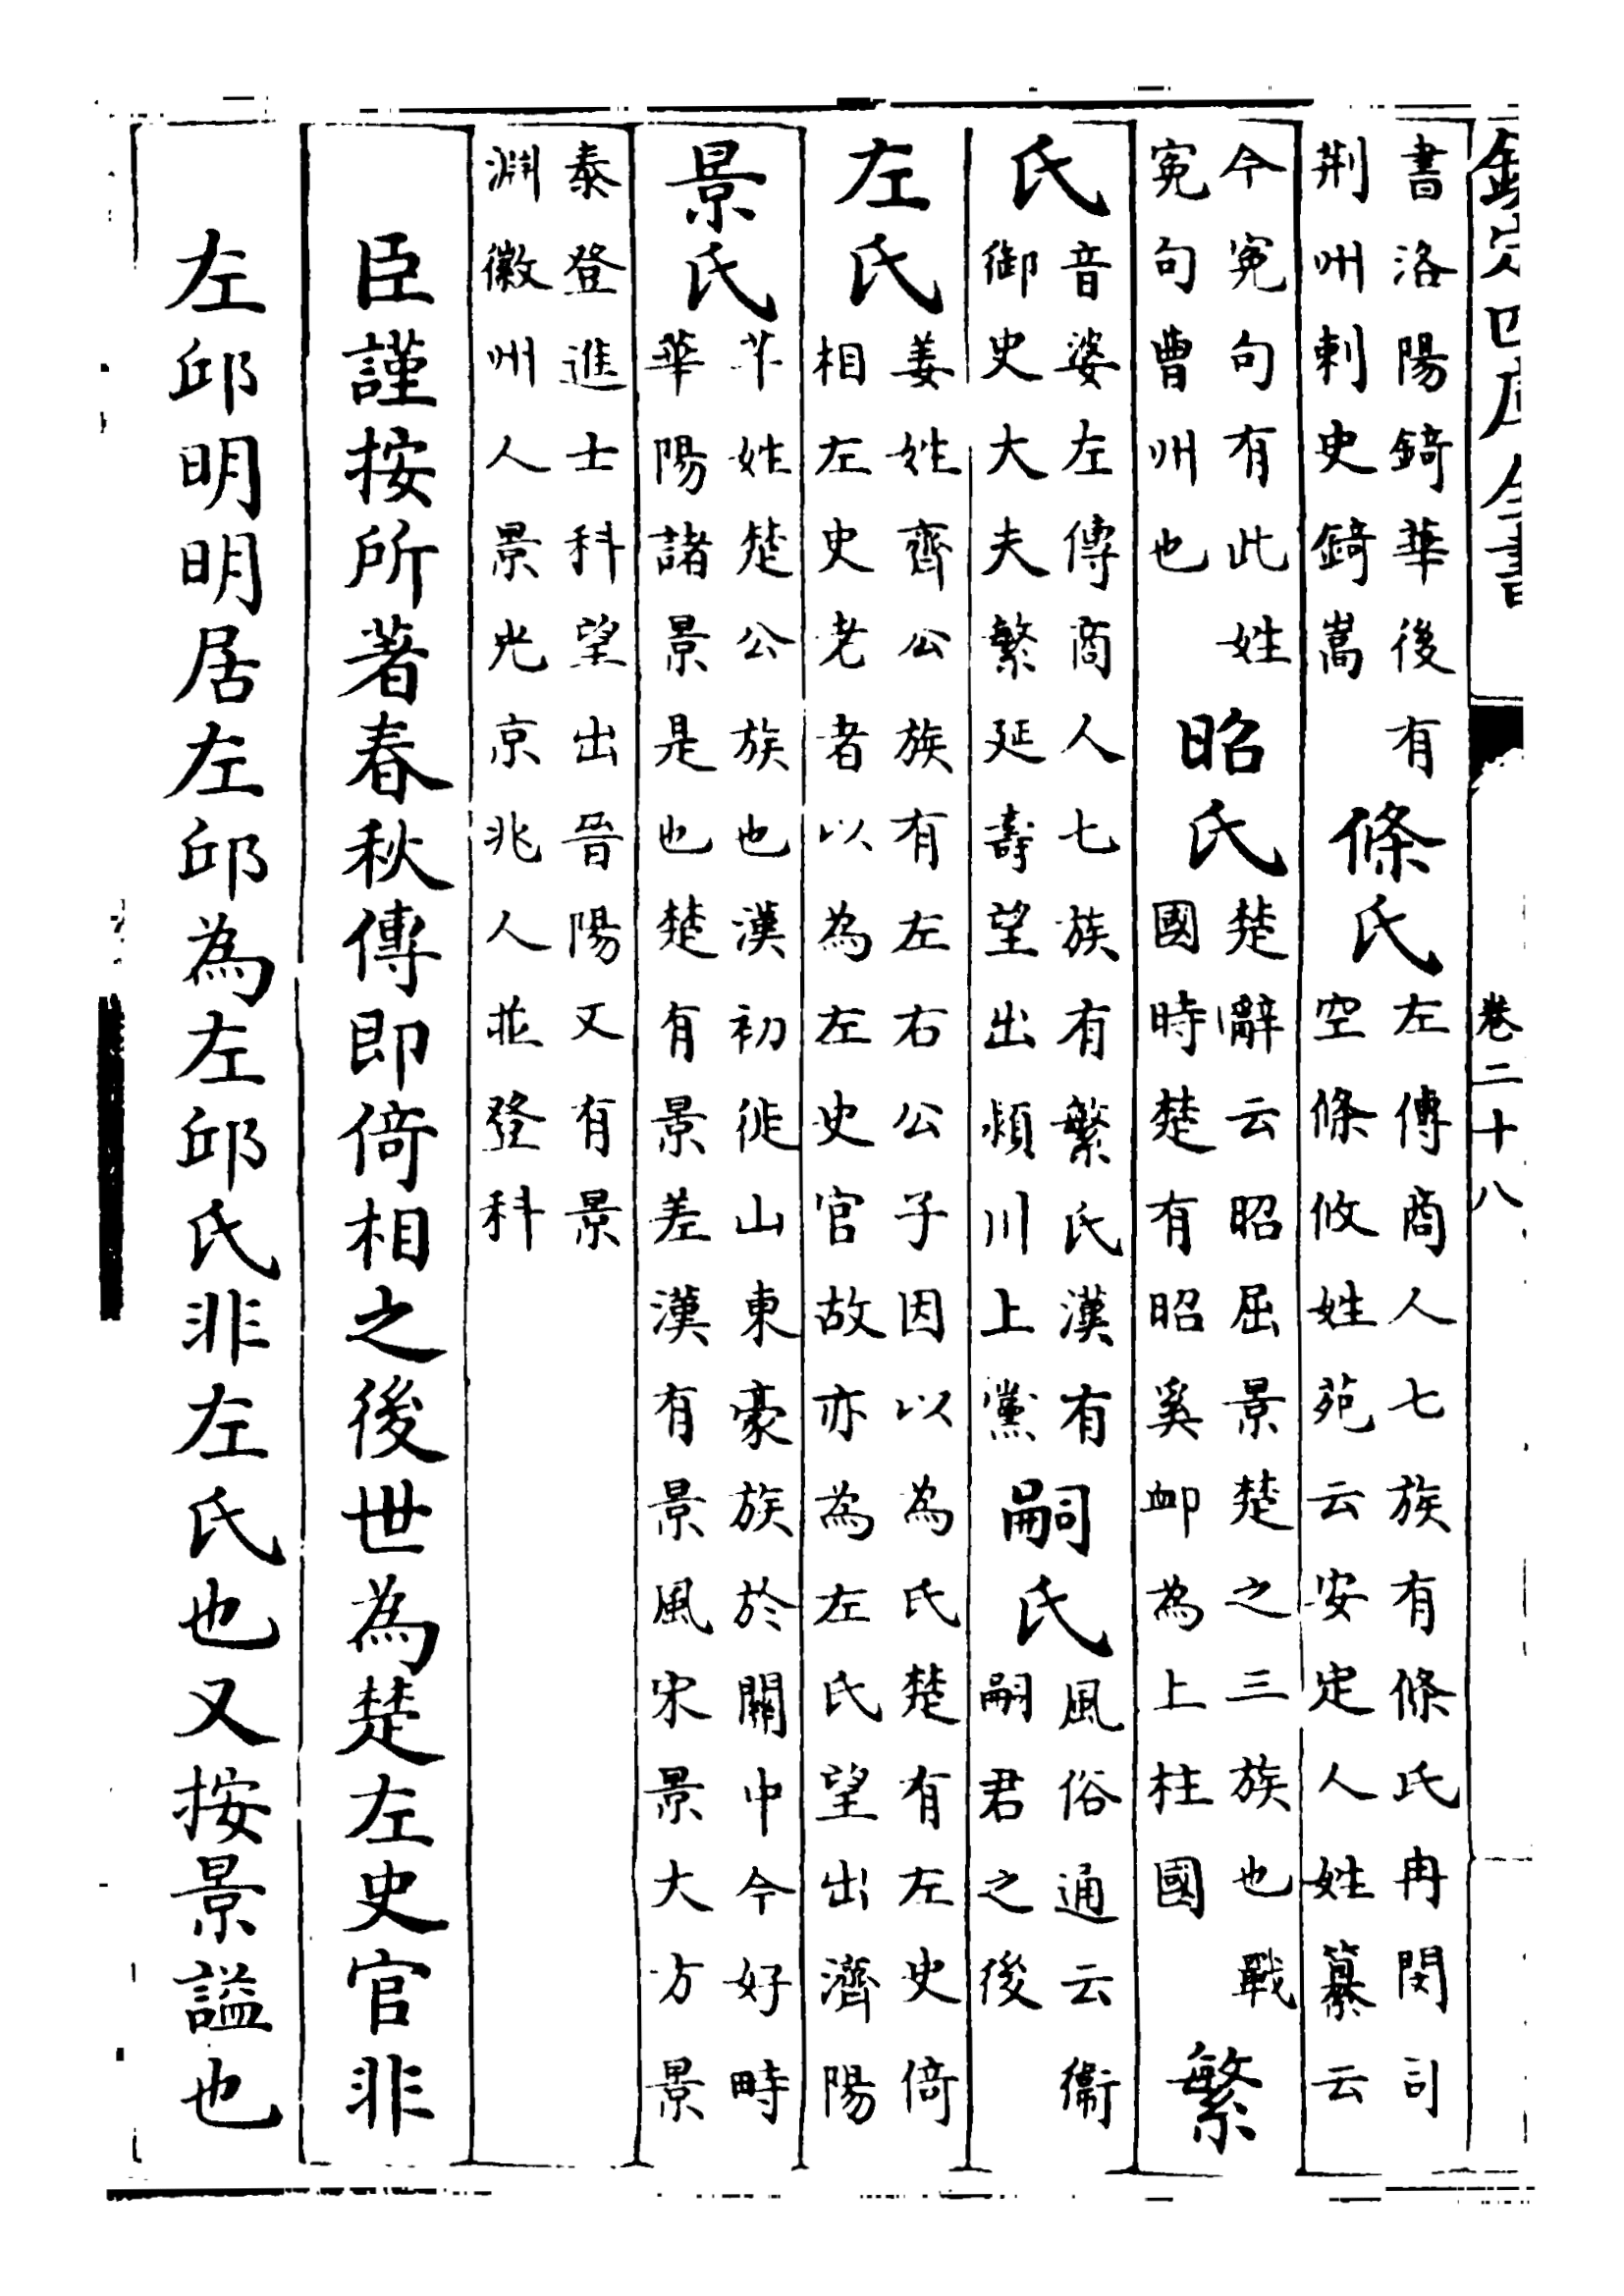 欽定四庫全書
卷二十八
書洛陽錡華後有
荆州刺史錡嵩
條氏
左傳商人七族有條氏冉閔司
空條攸姓苑云安定人姓纂云
今寃句有此姓
寃句曹州也
昭氏
楚辭云昭屈景楚之三族也戰
國時楚有昭奚䘏為上柱國
繁
氏
音婆左傳商人七族有繁氏漢有
御史大夫繁延壽望出潁川上黨
嗣氏
風俗通云衞
嗣君之後
左氏
姜姓齊公族有左右公子因以為氏楚有左史倚
相左史老者以為左史官故亦為左氏望出濟陽
景氏
芈姓楚公族也漢初徙山東豪族於關中今好畤
華陽諸景是也楚有景差漢有景風宋景大方景
泰登進士科望出晉陽又有景
淵徽州人景光京兆人並登科
臣謹按所著春秋傳即倚相之後世為楚左史官非
左邱明明居左邱為左邱氏非左氏也又按景謚也